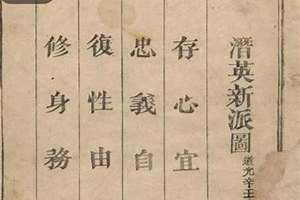 潛英新派圖 道光辛
存心宜
忠義自
復性由
修身務